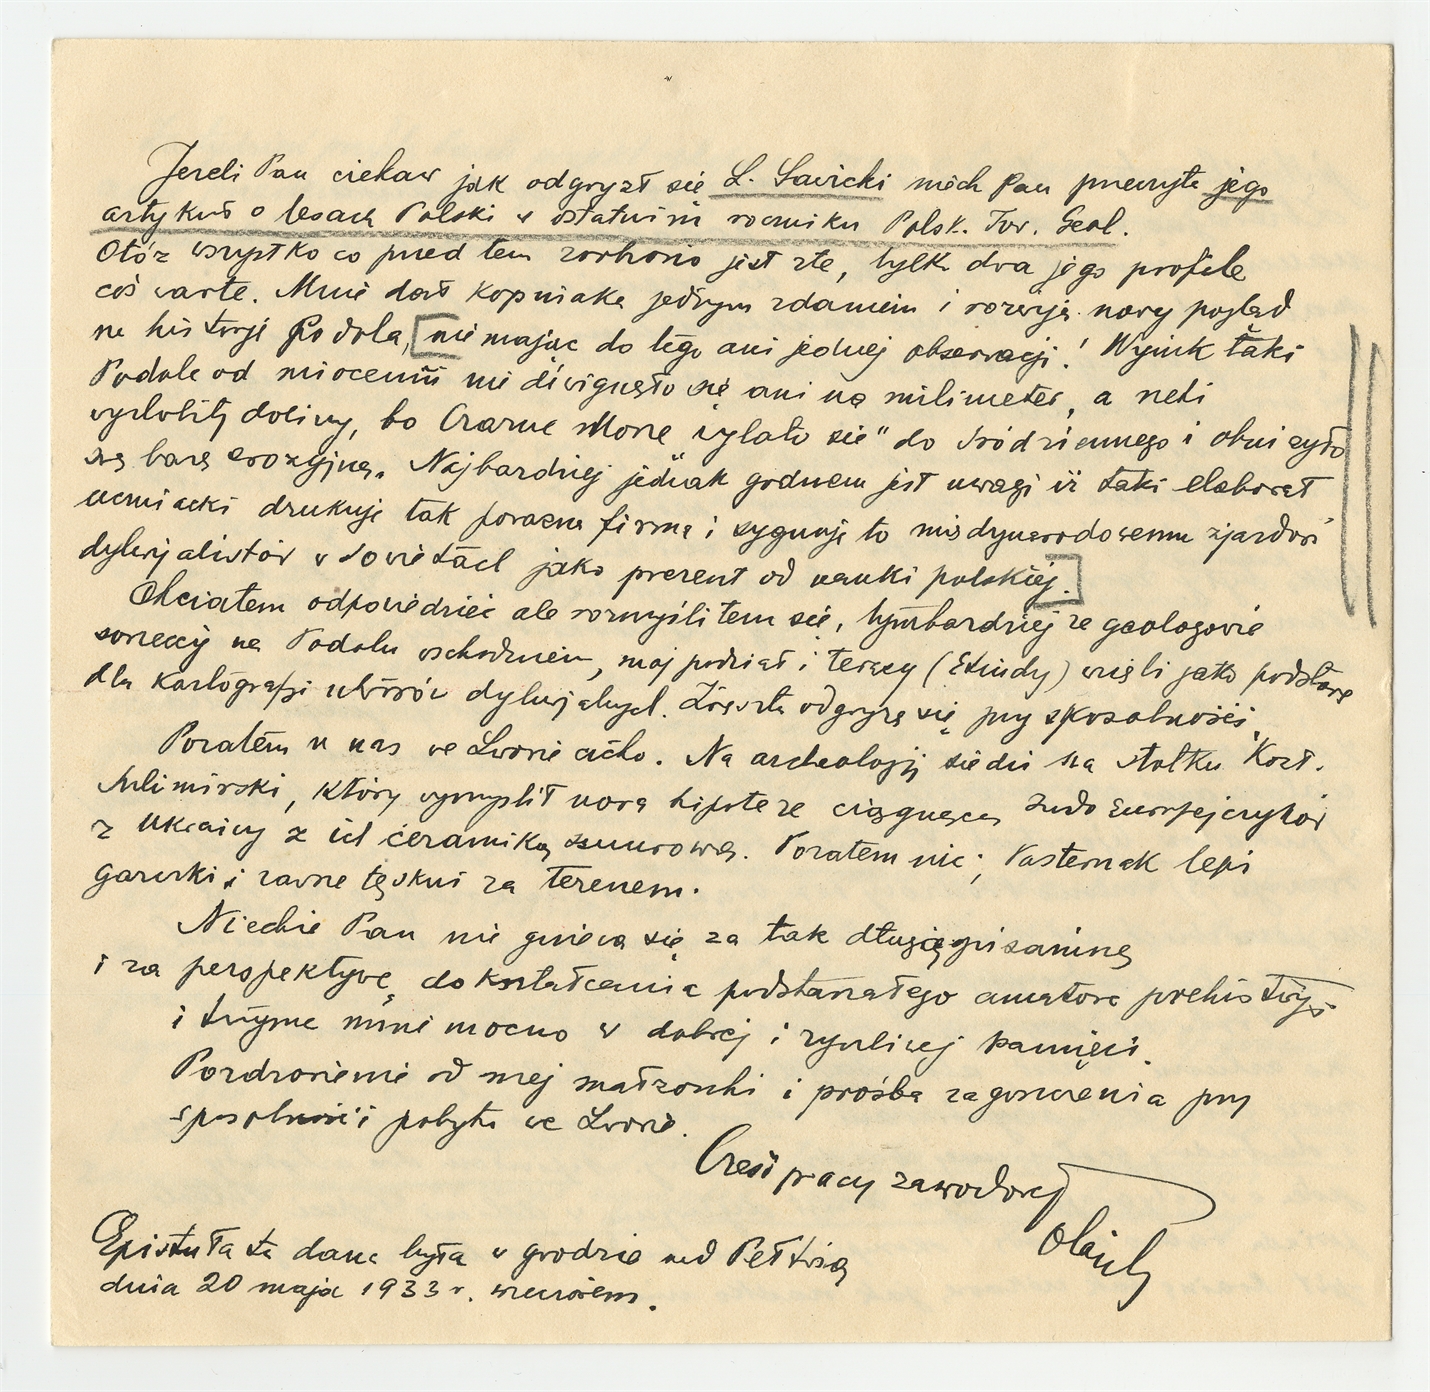 Jeżeli Pan ciekaw jak odgryzł się L. Sawicki niech Pan przeczyta jego
artykuł o lesach Polski w ostatnim roczniku Polsk. Tow. Geol.
Otóż wszystko co przed tem zrobiono jest złe, tylko dwa jego profile
coś warte. Mnie dał kopniaka jednym zdaniem i rozwija nowy pogląd
na historję Podola, nie mając do tego ani jednej obserwacji! Wynik taki
Podole od miocenu nie dźwignęło się ani na milimeter, a rzeki
wyżłobiły doliny, bo Czarne Morze „wylało się" do Śródziemnego i obniżyło
się bazę erozyjną. Najbardziej jednak godnem jest uwagi iż taki elaborat
drukuje tak poważna firma i sygnuje to międzynarodowemu zjazdowi
dyluwjalistów w Sowietach jako prezent od nauki polskiej.
Chciałem odpowiedzieć ale rozmyśliłem się, tymbardziej że geologowie
sowieccy na Podolu wschodniem, mój podział i terasy (Study) wzięli jako podstawę
dla kartografji utworów dyluwjalnych. Zresztą odgryzę się przy sposobności.
Pozatem u nas we Lwowie cicho. Na archeologji siedzi na stołku Kozł.
Sulimirski, który wymyślił nową hipotezę ciągnącą Indoeuropejczyków
z Ukrainy z ich ceramiką sznurową. Pozatem nic; Pasternak lepi
garnki i rzewnie tęskni za terenem.
Niechże Pan nie gniewa się za tak długą pisaninę
i za perspektywę dokształcania podstarzałego amatora prehistorji
i trzyma mnie mocno w dobrej i życzliwej pamięci.
Pozdrowienie od mej małżonki i prośba zagoszczenia przy
sposobności pobytu we Lwowie.
Cześć pracy zawodowej
Epistuła ta dana była w grodzie nad Pełtwią
dnia 20 maja 1933 r. wieczorem.